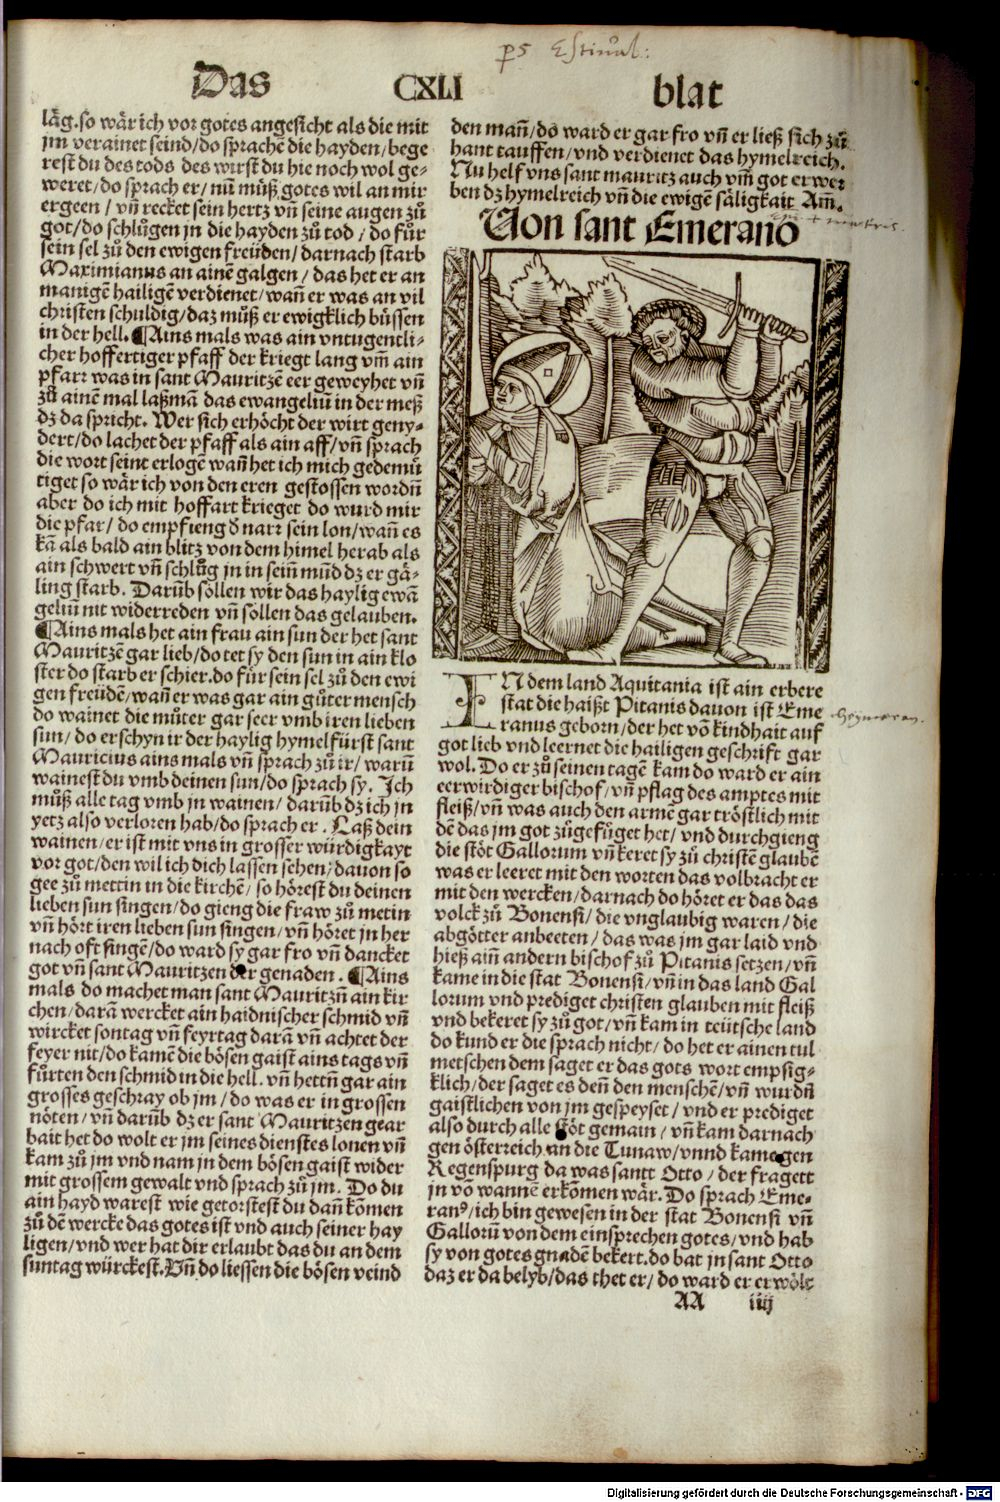 Das CXLI blat
läg.so wär ich vor gotes angesicht als die mit
jm verainet seind/do sprachẽ die hayden/bege
rest du des tods des wirst du hie noch wol ge-
weret/do sprach er/nũ můß gotes wil an mir
ergeen/vñ recket sein hertz vñ seine augen zů
got/do schlůgen jn die hayden zů tod/do fůr
sein sel zů den ewigen freüden/darnach starb
Maximianus an ainẽ galgen/das het er an
manigẽ hailigẽ verdienet/wañ er was an vil
christen schuldig/daz můß er ewigklich büssen
in der hell.¶Ains mals was ain vntugentli-
cher hoffertiger pfaff der kriegt lang vm̃ ain
pfarr was in sant Mauritzẽ eer geweyhet vñ
zů ainẽ mal laßmã das ewangeliũ in der meß
dz da spricht. Wer sich erhöcht der wirt geny-
dert/do lachet der pfaff als ain aff/vñ sprach
die wort seint erlogẽ wañ het ich mich gedemü
tiget so wär ich von den eren gestossen wordñ
aber do ich mit hoffart krieget do wurd mir
die pfar/do empfieng d̃ narr sein lon/wañ es
kã als bald ain blitz von dem himel herab als
ain schwert vñ schlůg jn in seiñ mũd dz er gä-
ling starb. Darũb söllen wir das haylig ewã
geliũ nit widerreden vñ sollen das gelauben.
¶Ains mals het ain frau ain sun der het sant
Mauritzẽ gar lieb/do tet sy den sun in ain klo
ster do starb er schier.do für sein sel zů den ewi
gen freüdẽ/wañ er was gar ain gůter mensch
do wainet die můter gar seer vmb iren lieben
sun/do erschyn ir der haylig hymelfürst sant
Mauricius ains mals vñ sprach zů ir/warũ
wainest du vmb deinen sun/do sprach sy. Ich
můß alle tag vmb jn wainen/darũb dz ich jn
yetz also verloren hab/do sprach er. Laß dein
wainen/er ist mit vns in grosser würdigkayt
vor got/den wil ich dich lassen sehen/dauon so
gee zů mettin in die kirchẽ/so hörest du deinen
lieben sun singen/do gieng die fraw zů metin
vñ hört iren lieben sun singen/vñ höret jn her
nach oft singẽ/do ward sy gar fro vñ dancket
got vñ sant Mauritzen der genaden. ¶Ains
mals do machet man sant Mauritzñ ain kir
chen/darã wercket ain haidnischer schmid vñ
wircket sontag vñ feyrtag darã vñ achtet der
feyer nit/do kamẽ die bösen gaist ains tags vñ
fůrten den schmid in die hell. vñ hettñ gar ain
grosses geschray ob jm/do was er in grossen
nöten/vñ darũb dz er sant Mauritzen gear
bait het do wolt er jm seines dienstes lonen vñ
kam zů jm vnd nam jn dem bösen gaist wider
mit grossem gewalt vnd sprach zů jm. Do du
ain hayd warest wie getorstest du dañ kömen
zů dẽ wercke das gotes ist vnd auch seiner hay
ligen/vnd wer hat dir erlaubt das du an dem
suntag würckest.Vñ do liessen die bösen veind
den mañ/do ward er gar fro vñ er ließ sich zů
hant tauffen/vnd verdienet das hymelreich.
Nu helf vns sant mauritz auch vm̃ got erwer
ben dz hymelreich vñ die ewigẽ säligkait Am̃.
Von sant Emerano
IN dem land Aquitania ist ain erbere
stat die haißt Pitanis dauon ist Eme
ranus geborn/der het võ kindhait auf
got lieb vnd leernet die hailigen geschrift gar
wol. Do er zů seinen tagẽ kam do ward er ain
eerwirdiger bischof/vñ pflag des amptes mit
fleiß/vñ was auch den armẽ gar tröstlich mit
dẽ das jm got zůgefůget het/vnd durchgieng
die stöt Gallorum vñ keret sy zů christẽ glaubẽ
was er leeret mit den worten das volbracht er
mit den wercken/darnach do höret er das das
volck zů Bonensi/die vnglaubig waren/die
abgötter anbeeten/das was jm gar laid vnd
hieß aiñ andern bischof zů Pitanis setzen/vñ
kame in die stat Bonensi/vñ in das land Gal
lorum vnd prediget christen glauben mit fleiß
vnd bekeret sy zů got/vñ kam in teütsche land
do kund er die sprach nicht/do het er ainen tul
metschen dem saget er das gots wort empsig-
klich/der saget es deñ den menschẽ/vñ wurdñ
gaistlichen von jm gespeyset/vnd er prediget
also durch alle stöt gemain/vñ kam darnach
gen österreich an die Tunaw/vnnd kame gen
Regenspurg da was santt Otto/der fragett
jn võ wannẽ er kõmen wär. Do sprach Eme-
ranꝰ/ich bin gewesen in der stat Bonensi vñ
Gallorũ von dem einsprechen gotes/vnd hab
sy von gotes gnadẽ bekert.do bat jn sant Otto
daz er da belyb/das thet er/do ward er erwölt
AA iiij
Digitalisierung gefördert durch die Deutsche Forschungsgemeinschaft - DFG